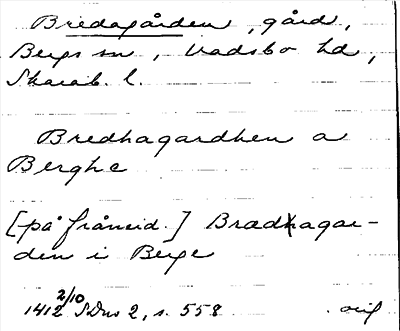 Bredagården, gård,
Bergs sn, Vadsbo hd,
Skarab. l.
Bredhagardhen a
Berghe
[på frånsid.] Bradhagar-
den i Berge
1412 2/10 SDns 2, s. 558 orig